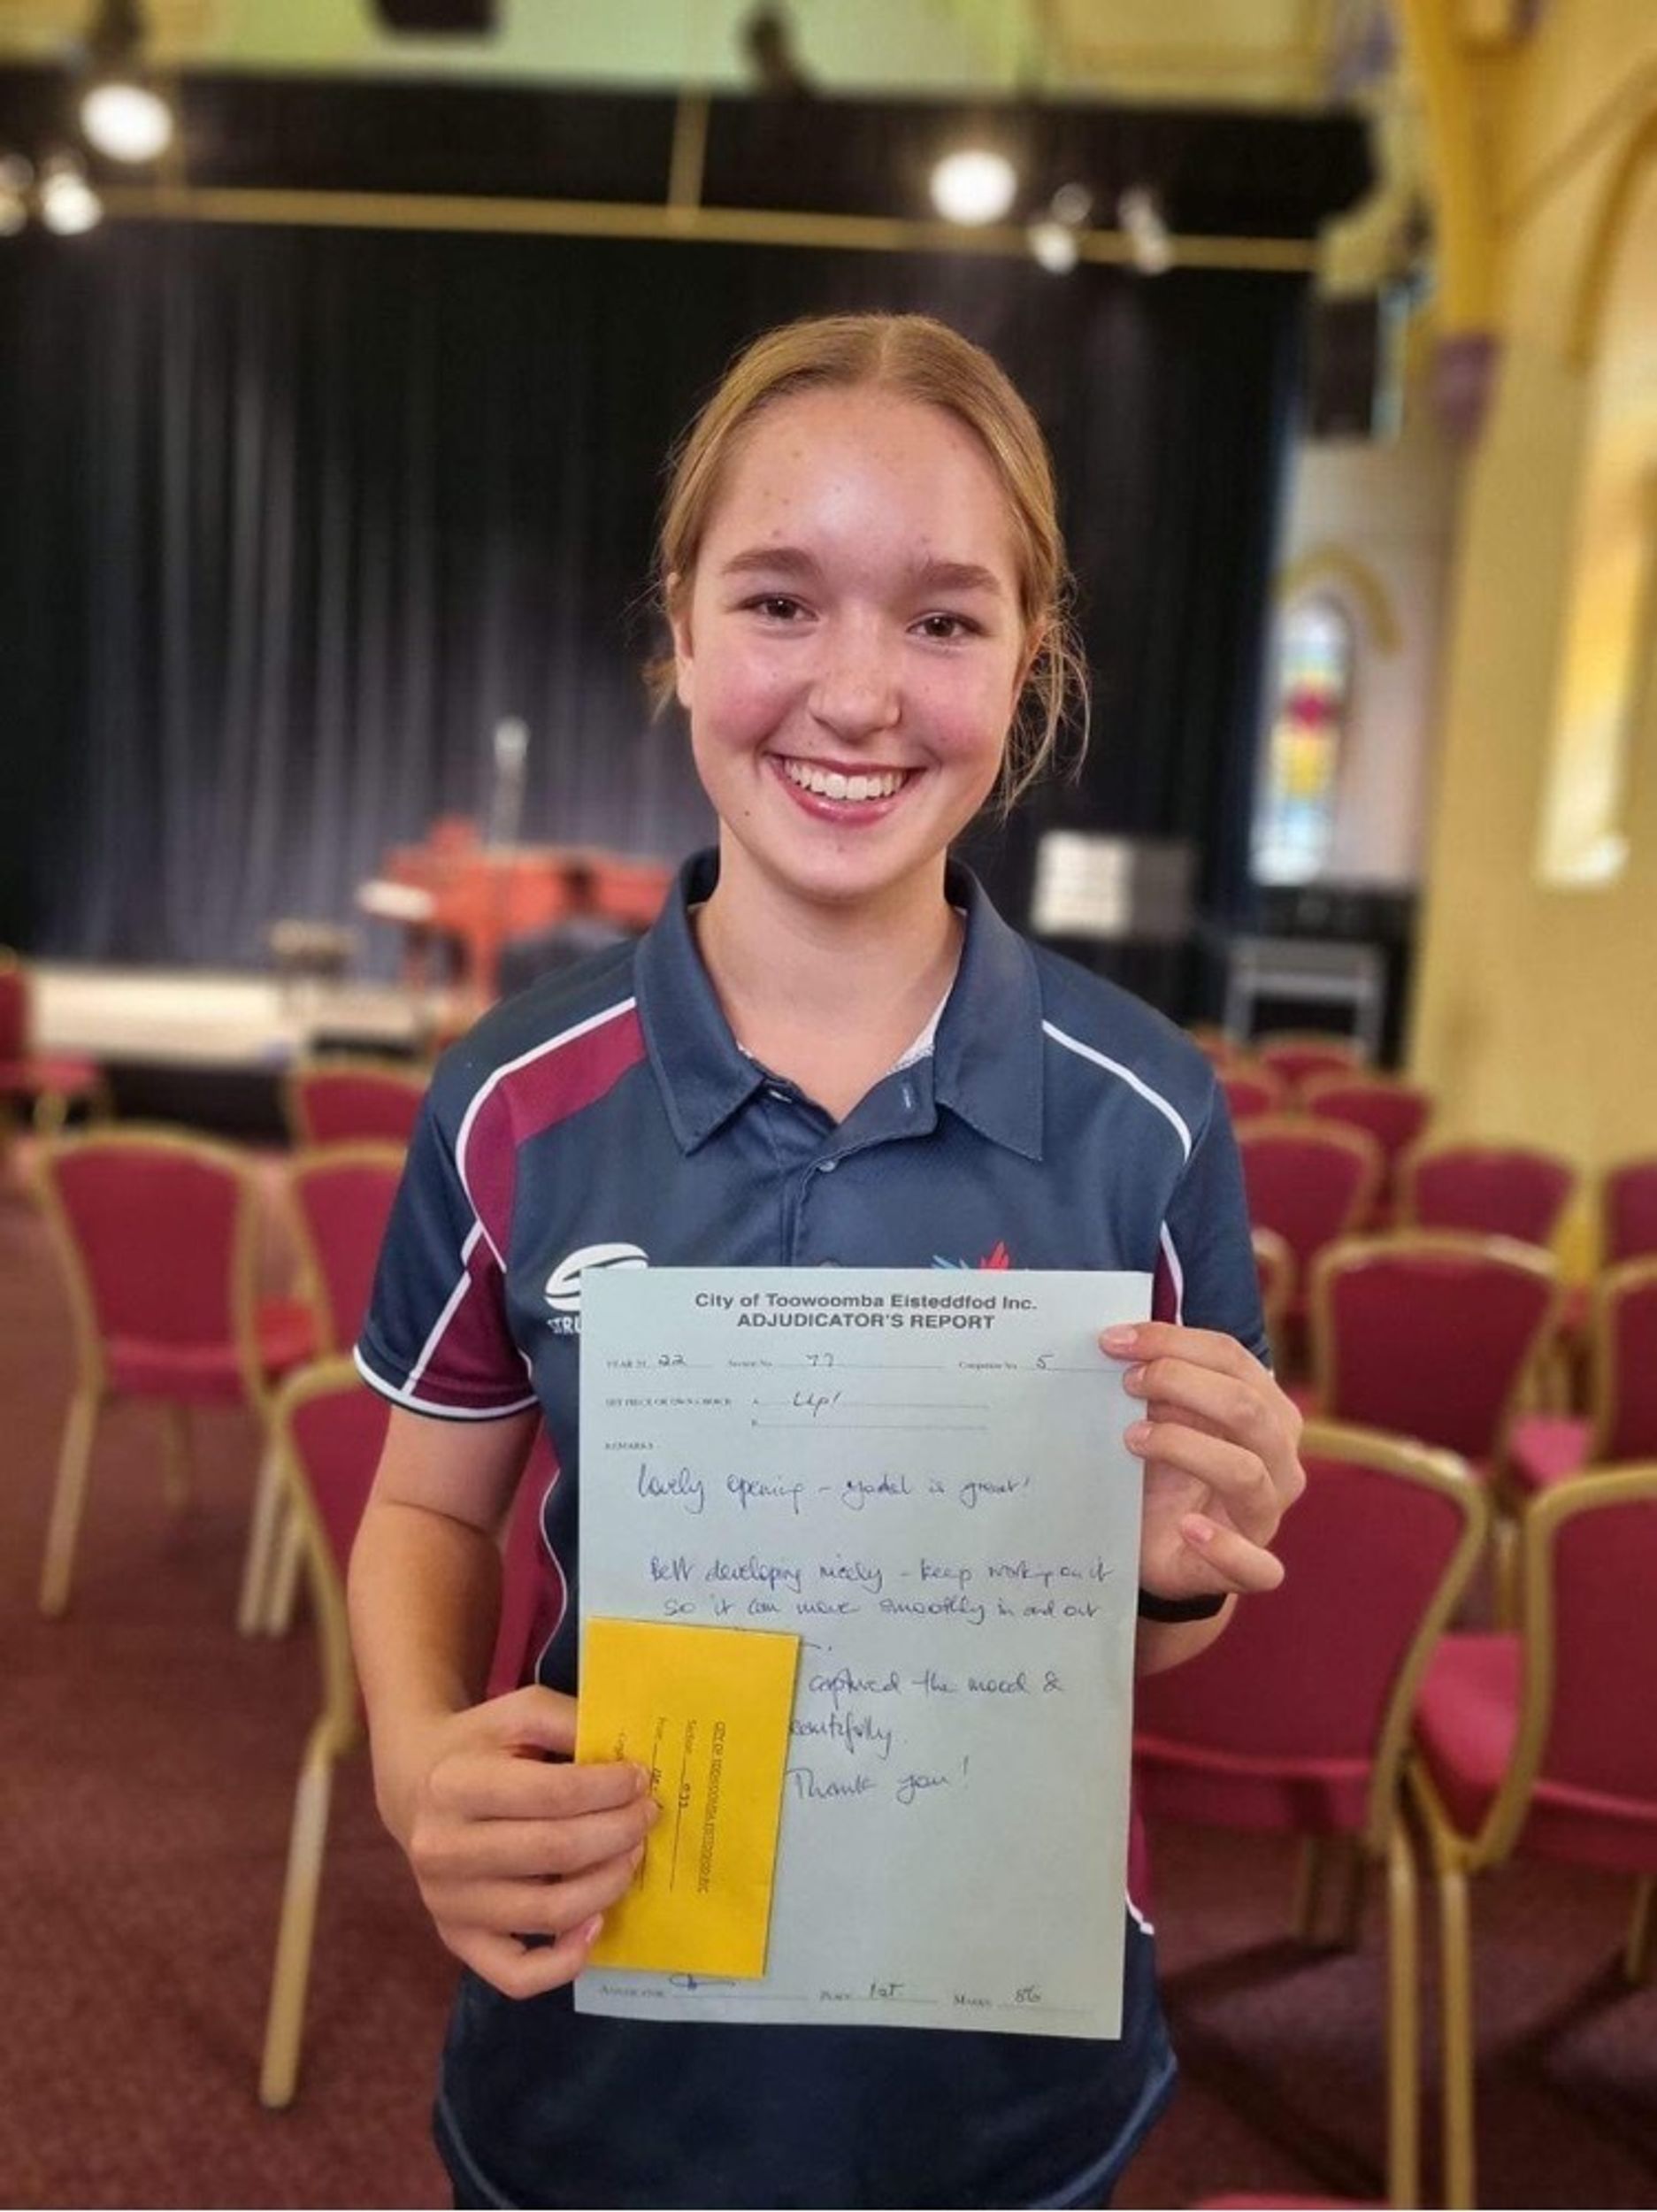 STRU
City of Toowoomba Eisteddfod Inc.
ADJUDICATOR'S REPORT
YEAR 20 22 Section No. 77 Competitor No. 5
SET PIECE OR OWN CHOICE A. Up!
B.
REMARKS
Lovely opening - yodel is great!
Belt developing nicely - keep working on it
so it can move smoothly in and out
captured the mood &
eautifully.
Thank you!
CITY OF TOOWOOMBA EISTEDDFOD INC.
Section
Prize
ADJUDICATOR PLACE 1st MARKS 86